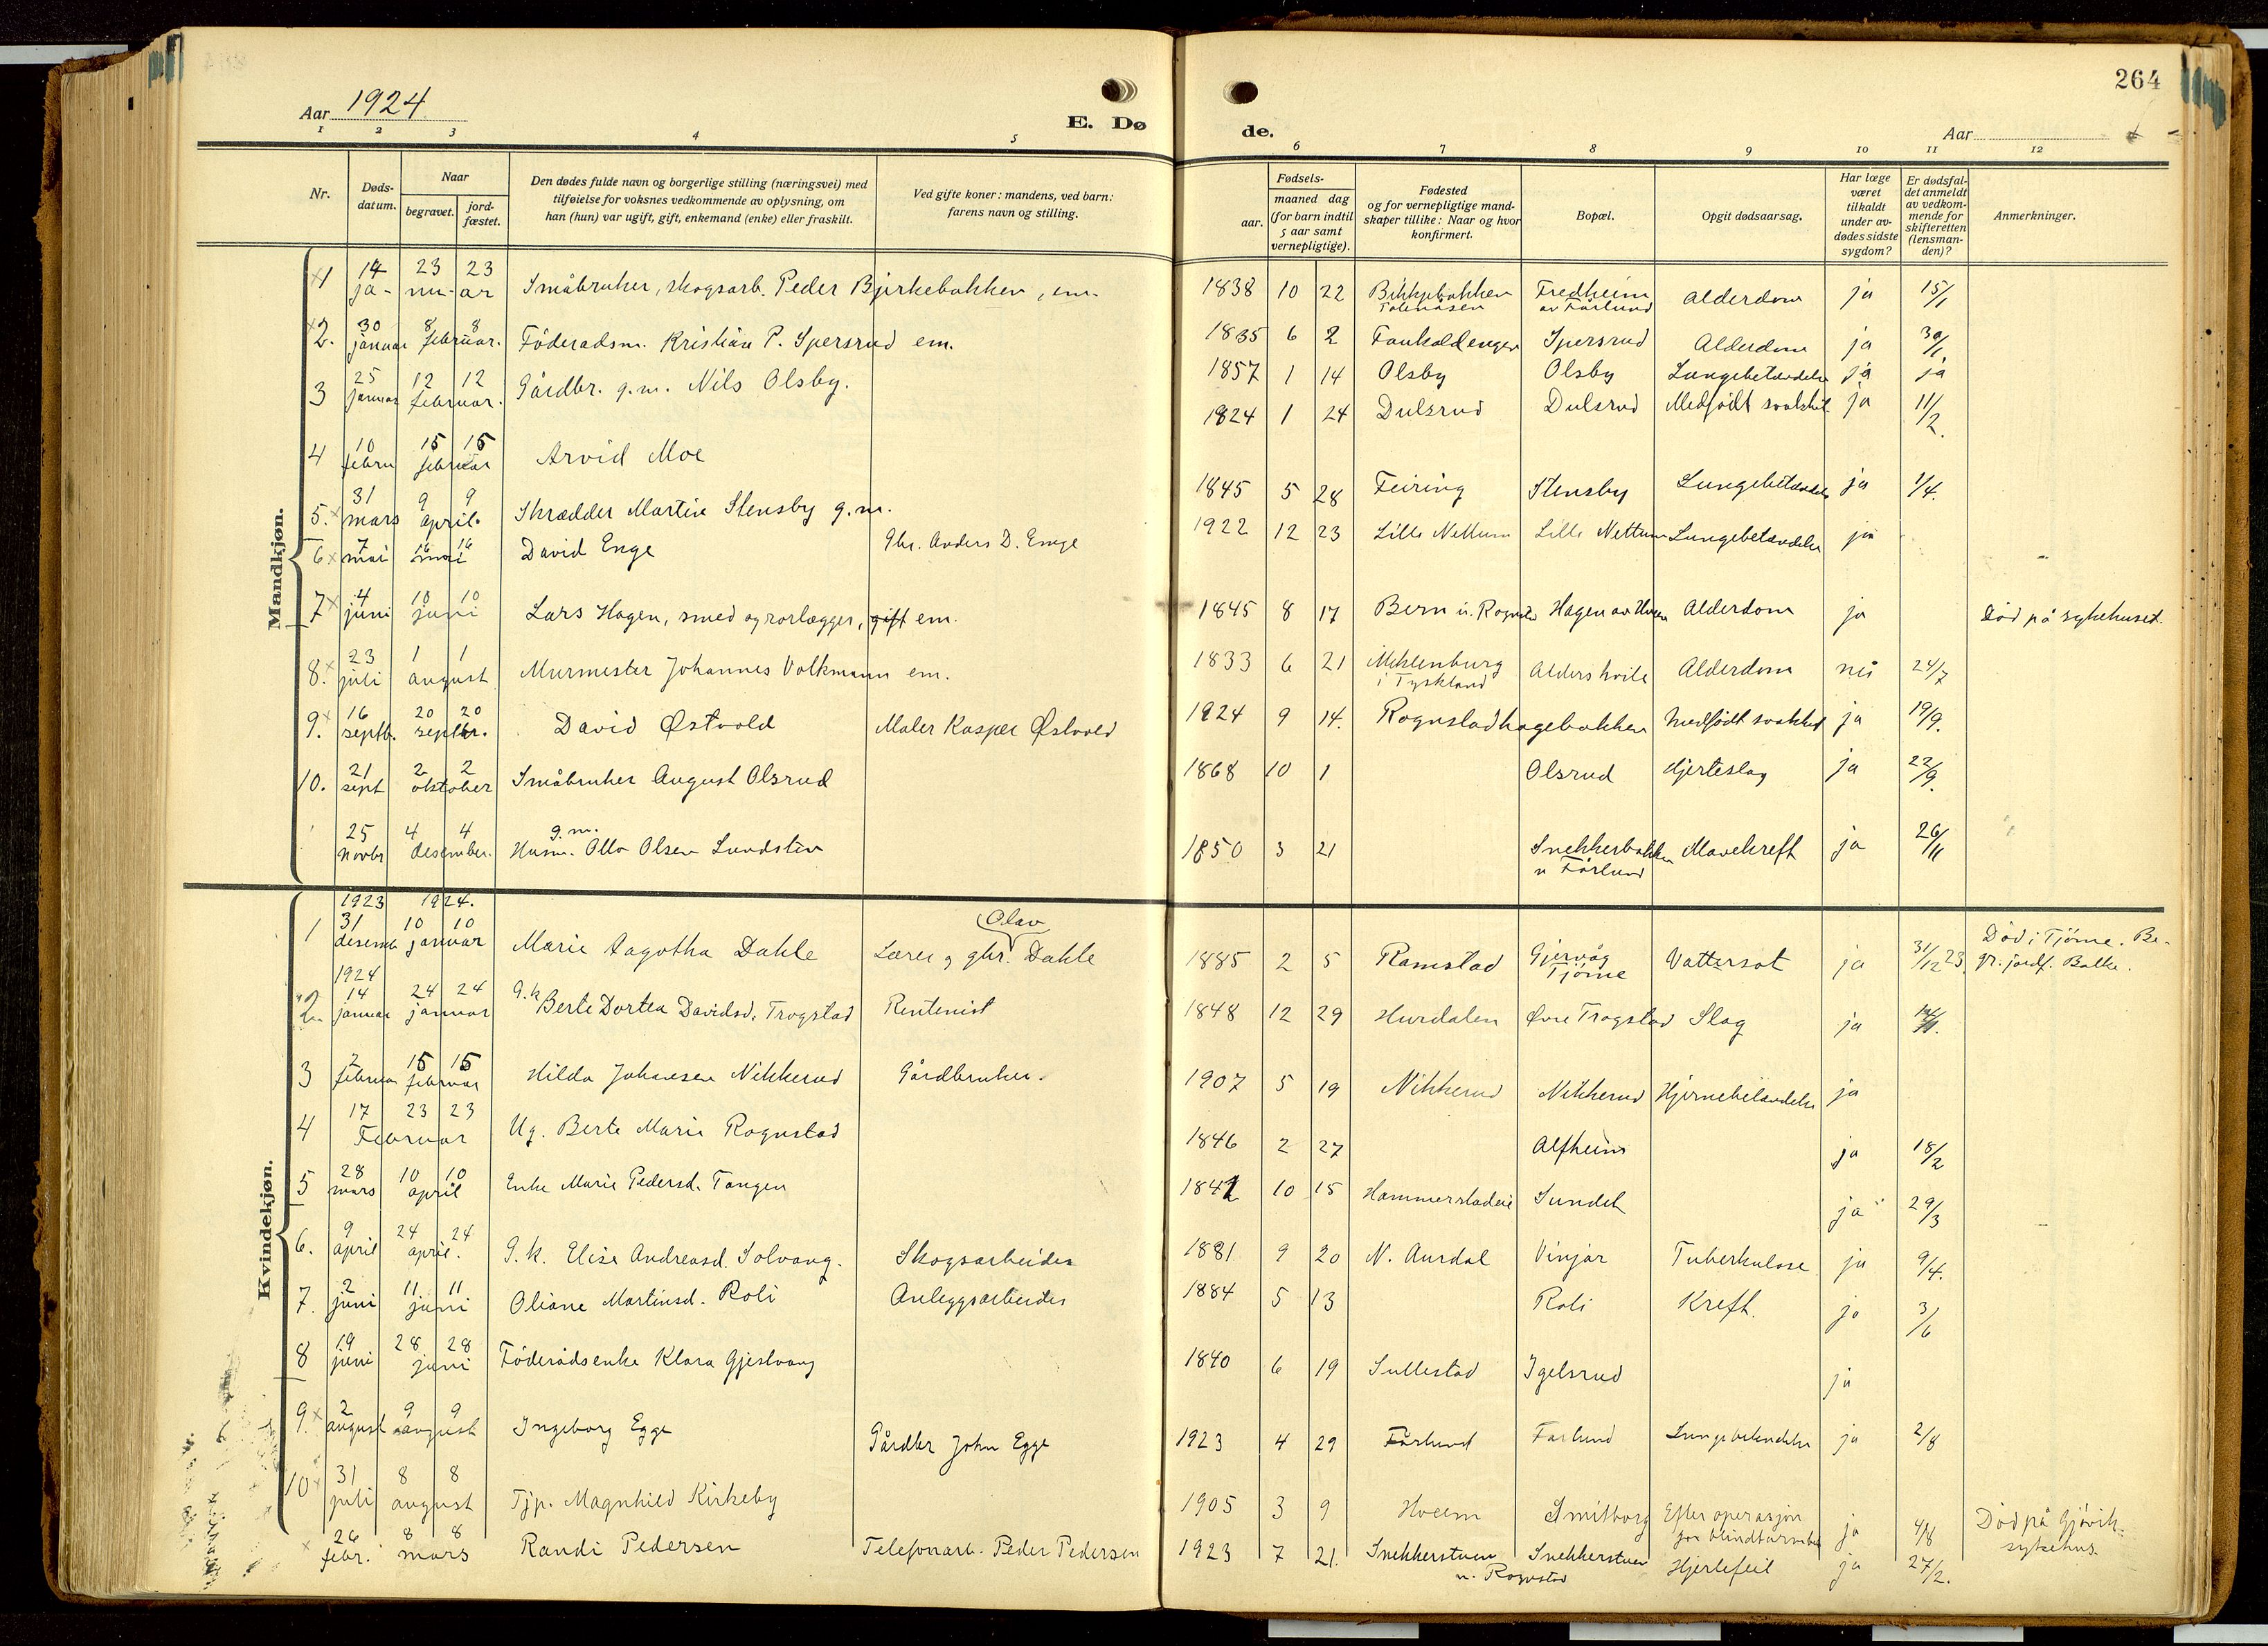 264
Aar 1924
E. Dø
de.
Aar
1 2 3 4 5 6 7 8 9 10 11 12
Nr.
Døds-datum.
Naar
begravet.
jord-fæstet.
Den dødes fulde navn og borgerlige stilling (næringsvei) med
tilføielse for voksnes vedkommende av oplysning, om
han (hun) var ugift, gift, enkemand (enke) eller fraskilt.
Ved gifte koner: mandens, ved barn:
farens navn og stilling.
Fødsels-
aar.
maaned dag
(for barn indtil
5 aar samt
vernepligtige).
Fødested
og for vernepligtige mand-
skaper tillike: Naar og hvor
konfirmert.
Bopæl.
Opgit dødsaarsag.
Har læge
været
tilkaldt
under av-
dødes sidste
sygdom?
Er dødsfal-
det anmeldt
av vedkom-
mende for
skifteretten
(lensman-
den)?
Anmerkninger.
Mandkjøn.
1 14 23 23 januar Småbruker, skogsarb. Peder Bjirkebakken, em. 1838 10 22 Bikkjebakken Totenåsen Fredheim av Førlund Alderdom ja 15/1
2. 30 januar 8 8 februar. Föderadsm. Kristian P. Spersrud em. 1835 6 2 Faukaldengen Spersrud Alderdom ja 30/1.
3 25 januar 12 12 februar. Gårdbr. g.m. Nils Olsby. 1857 1 14 Olsby Olsby Lungebetændelse ja ja
4 10 febru 15 15 februar Arvid Moe 1824 1 24 Dulsrud Dulsrud Medfødt svakhet ja 11/2.
5. 31 mars 9 9 april. Skrædder Martin Stensby g.m. 1845 5 28 Feiring Stensby Lungebetændelse ja 1/4.
6 7 mai 16 16 mai David Enge Gbr. Anders D. Enge 1922 12 23 Lille Nettum Lille Nettum Lungebetændelse ja
7 4 juni 10 10 juni Lars Hagen, smed og rørlægger, gift em. 1845 8 17 Bern u. Rognstad Hagen av Alderdom ja Død på sykehuset.
8. 23 juli 1 1 august Murmester Johannes Volkmann em. 1833 6 21 Meklenburg i Tyskland Alders hvile Alderdom nei 24/7
9. 16 septb. 20 20 septbr. David Østvold Maler Kasper Østvold 1924 9 14. Rognstadhagebakken Medfødt svakhet ja 19/9.
10. 21 sept 2 2 oktober Småbruker August Olsrud 1868 10 1 Olsrud Hjerteslag ja 22/9.
25 novbr 4 4 desember. g.m. Husm. Otto Olsen Lundstein 1850 3 21 Snekkerbakken uFørlund Mavekreft ja 26/11
Kvindekjøn.
1923 1924.
1 31 desemb 10 10 januar Marie Aagotha Dahle Lærer og gbr. Olav Dahle 1885 2 5 Ramstad Gjervåg Tjöme Vattersot ja 31/12 23 Død i Tjöme. Be-
gr. jordf. Balke.
1924
2. 14 januar 24 24 januar G.k Berte Dortea Davidsd. Trogstad Rentenist 1848 12 29 Hurdalen Øvre Trogstad Slag ja
3 2 februar 15 15 februar Hilda Johansen Nikkerud Gårdbruker. 1907 5 19 Nikkerud Nikkerud Hjernebetændelse ja
4 17 23 23 Februar Ug. Berte Marie Rognstad 1846 2 27 Alfheim ja 18/2
5 28 mars 10 10 april Enke Marie Pedersd. Tangen 1842 10 15 Hammerstadeie Sundet ja 29/3
6. 9 april 24 24 april. G.k. Elise Andreasd. Solvang. Skogsarbeider 1881 9 20 N. Aurdal Vinjar Tuberkulose ja 9/4.
7. 2 juni 11 11 juni Oliane Martinsd. Roli Anleggsarbeider 1884 5 13 Roli Kreft. ja 3/6
8 19 juni 28 28 juni Föderådsenke Klara Gjestvang 1840 6 19 Sullestad Igelsrud ja
9. 2 august 9 9 august Ingeborg Egge Gårdbr John Egge 1923 4 29 Førlund Førlund Lungebetændelse ja 2/8
10 31 juli 8 8 august Tjp. Magnhild Kirkeby 1905 3 9 Hveem Smitborg Efter operasjon for blindtarmbet ja 4/8 Død på Gjøvik
sykehus.
26 febr. 8 8 mars Randi Pedersen Telefonarb. Peder Pedersen 1923 7 21. Snekkerstuen u. Rognstad Snekkerstuen Hjertefeil ja 27/2.